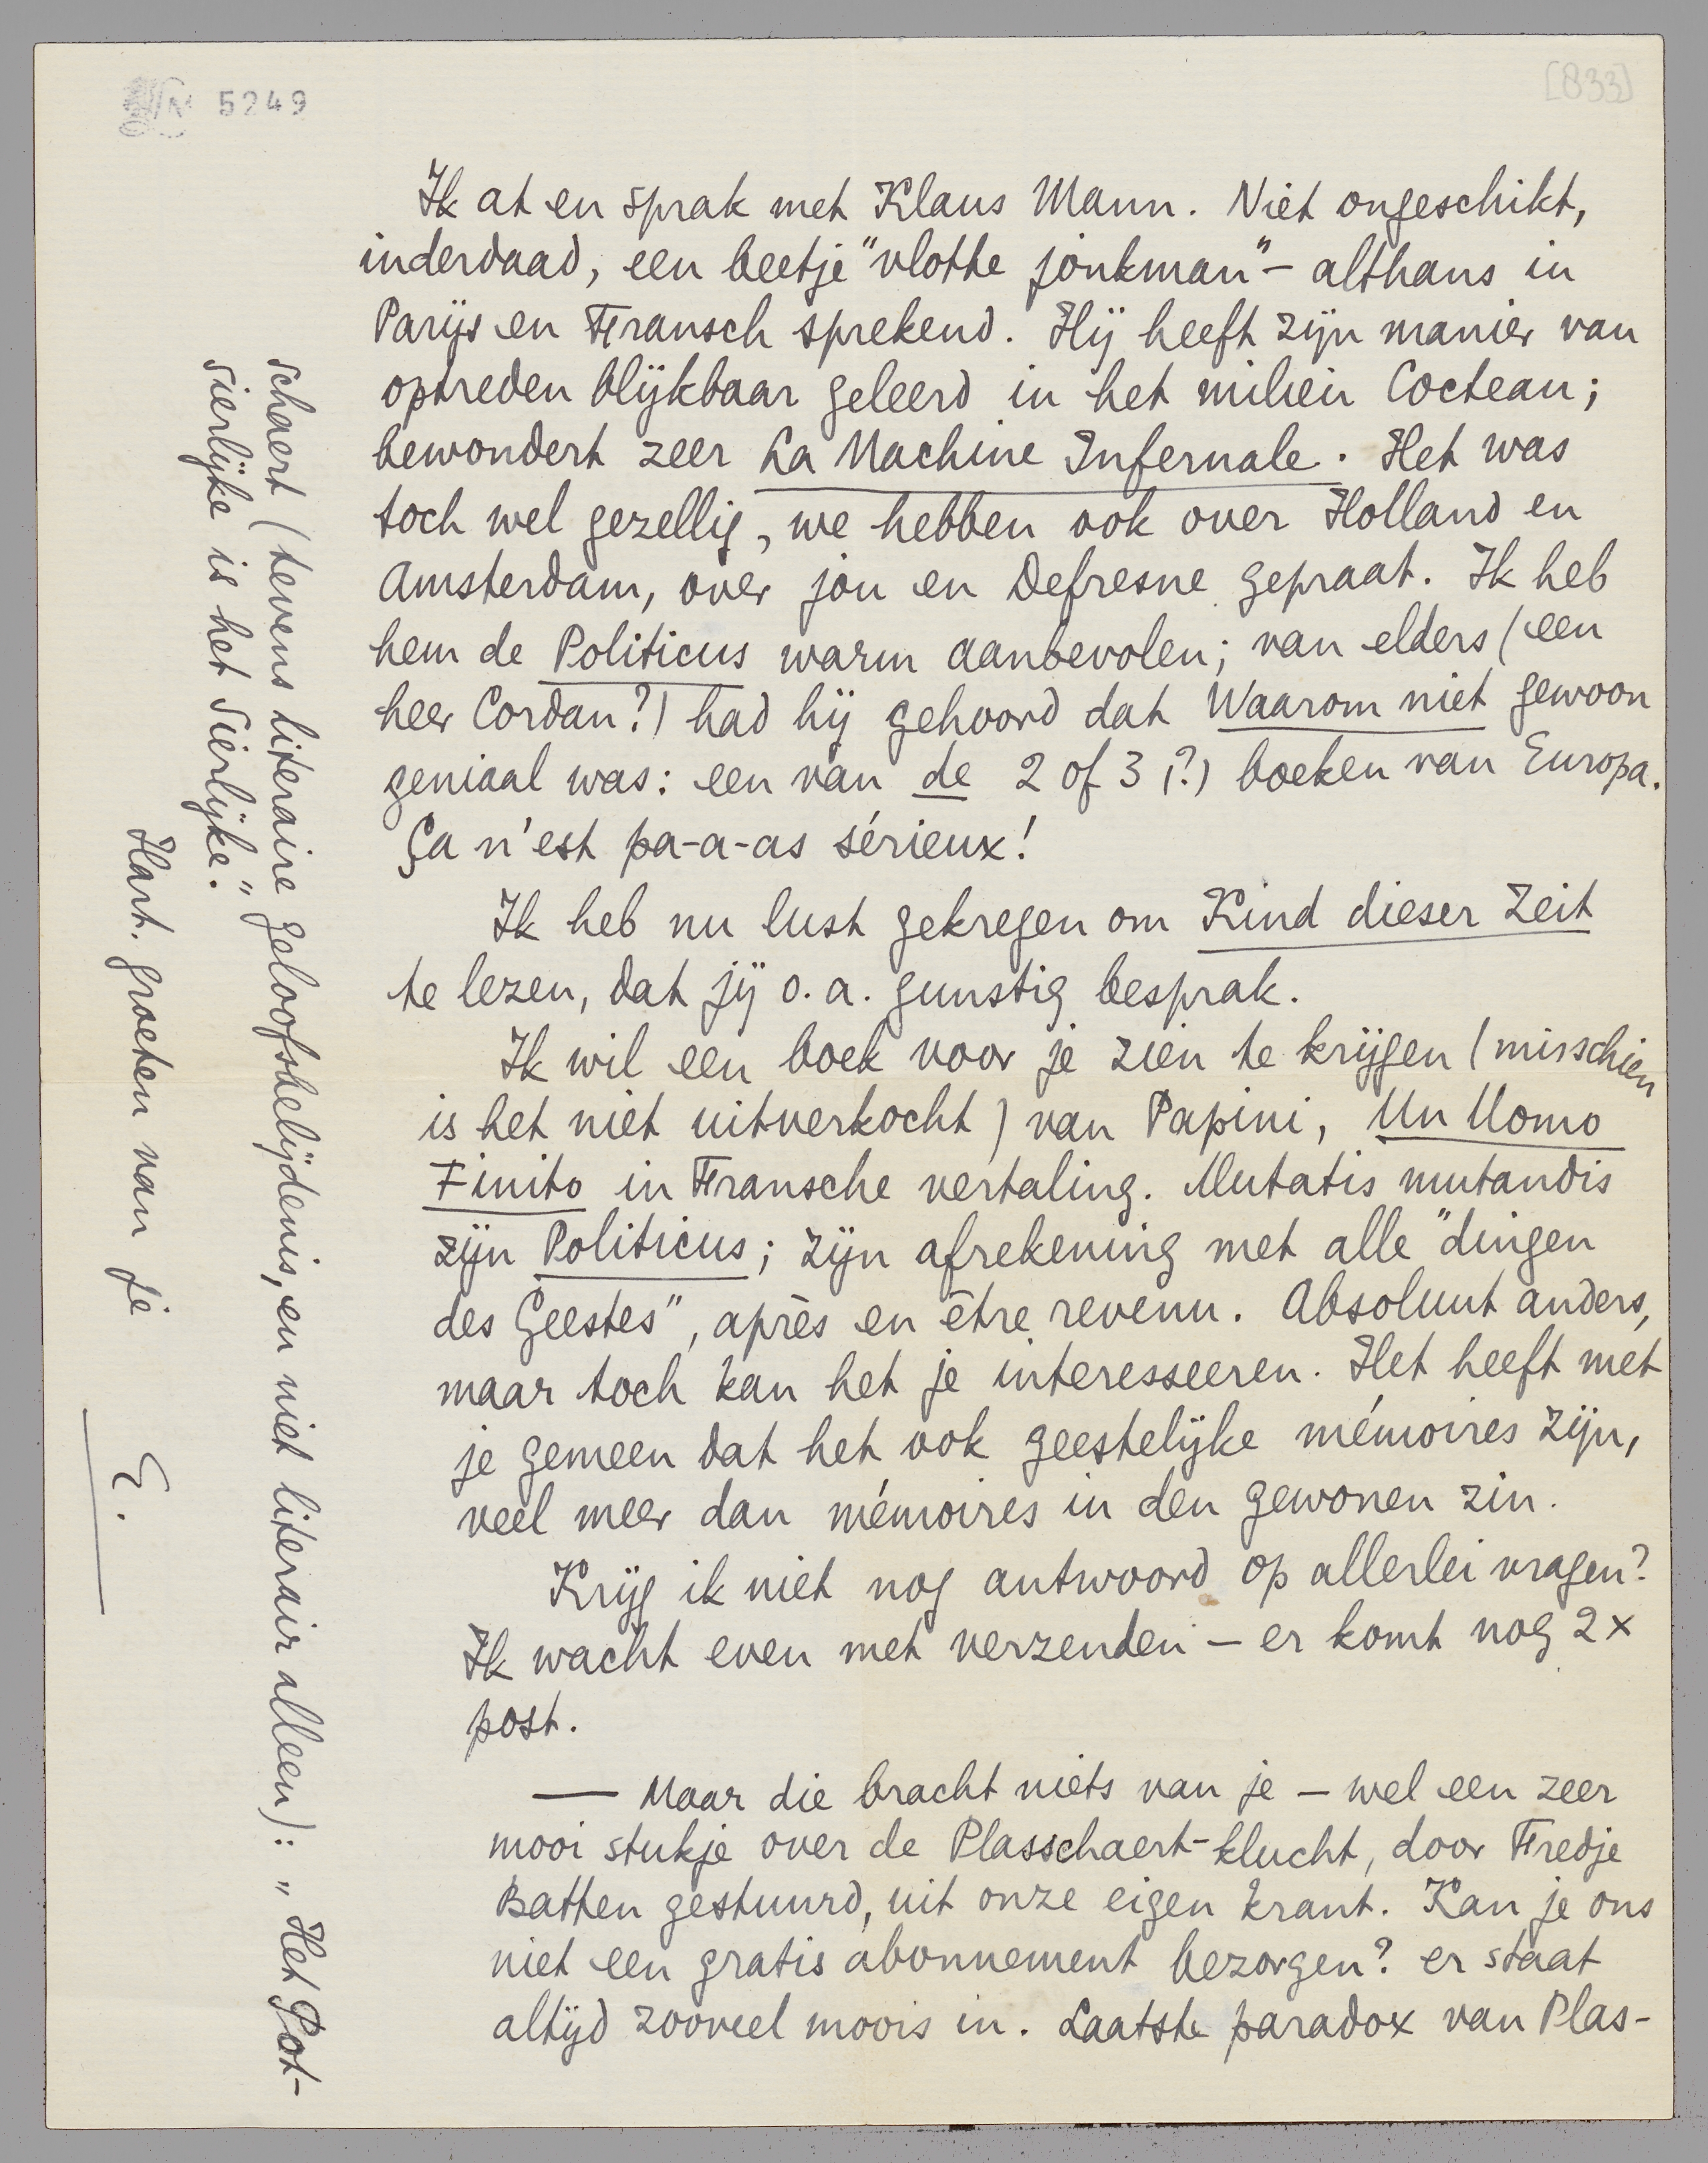 5249
[833]
Ik at en sprak met Klaus Mann. Niet ongeschikt,
inderdaad, een beetje "vlotte jonkman" – althans in
Parijs en Fransch sprekend. Hij heeft zijn manier van
optreden blijkbaar geleerd in het milieu Cocteau;
bewondert zeer La Machine Infernale. Het was
toch wel gezellig, we hebben ook over Holland en
Amsterdam, over jou en Defresne gepraat. Ik heb
hem de Politicus warm aanbevolen; van elders (een
heer Cordan?) had hij gehoord dat Waarom niet gewoon
geniaal was: een van de 2 of 3 (?) boeken van Europa.
Ça n'est pa-a-as sérieux!
Ik heb nu lust gekregen om Kind dieser Zeit
te lezen, dat jij o.a. gunstig besprak.
Ik wil een boek voor je zien te krijgen (misschien
is het niet uitverkocht) van Papini, Un Uomo
Finito in Fransche vertaling. Mutatis mutandis
zijn Politicus; zijn afrekening met alle "dingen
des Geestes", après en être revenu. Absoluut anders,
maar toch kan het je interesseeren. Het heeft met
je gemeen dat het ook geestelijke mémoires zijn,
veel meer dan mémoires in den gewonen zin.
Krijg ik niet nog antwoord op allerlei vragen?
Ik wacht even met verzenden – er komt nog 2 x
post.
— Maar die bracht niets van je – wel een zeer
mooi stukje over de Plasschaert-klucht, door Fredje
Batten gestuurd, uit onze eigen krant. Kan je ons
niet een gratis abonnement bezorgen? er staat
altijd zooveel moois in. Laatste paradox van Plas-
schaert (tevens literaire geloofsbelijdenis, en niet literair alleen): „Het Pot-
sierlijke is het Sierlijke."
Hart. groeten van je
E.